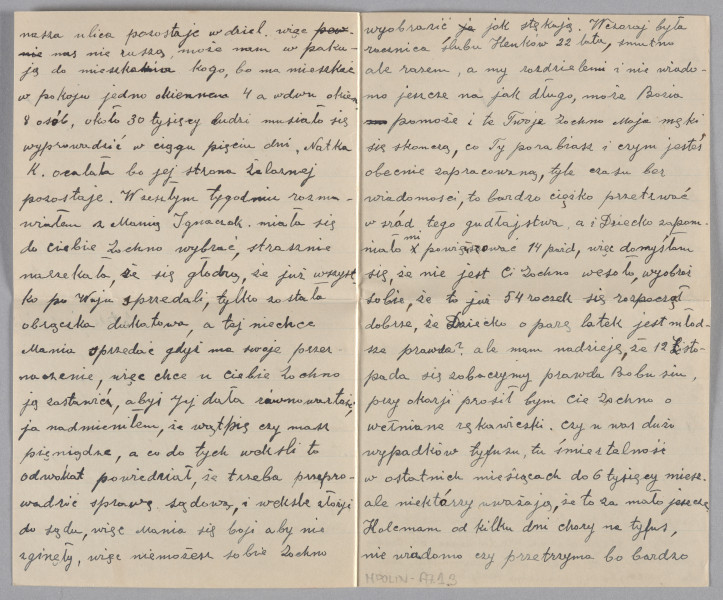 nasza ulica pozostaje w dziel. więc pew-
nie nas nie ruszą, może nam w paku-
ją do mieszkania kogo, bo ma mieszkać
w pokoju jedno okiennem 4 a wdwu okien
8 osób, około 30 tysięcy ludzi musiało się
wyprowadzić w ciągu pięciu dni, Natka
K. ocalała bo jej strona Żelaznej
pozostaje. W zeszłym tygodniu rozma-
wiałem z Manią Ignaczak. miała się
do Ciebie Zochno wybrać, strasznie
narzekała, że się głodzą, że już wszyst
ko po Wuju sprzedali, tylko została
obrączka dukatowa, a tej niechce
Mania sprzedać gdyż ma swoje przez-
naczenie, więc chce u ciebie Zochno
ją zastawić, abyś Jej dała równowartość,
ja nadmieniłem, że wątpię czy masz
pieniądze, a co do tych weksli to
adwokat powiedział, że trzeba przepro-
wadzić sprawę sądową, i weksle złożyć
do sądu, więc Mania się boji aby nie
zginęły, więc niemożesz sobie Zochno
wyobrazić ja jak stękają. Wczoraj była
rocznica ślubu Heńków 22 lata, smutno
ale razem, a my rozdzieleni i nie wiado-
mo jeszcze na jak długo, może Bozia
pomoże i te Twoje Zochno Moja męki
się skończą, co Ty porabiasz i czym jesteś
obecnie zapracowana, tyle czasu bez
wiadomości, to bardzo ciężko przetrwać
w śród tego gudłajstwa, a i Dziecko zapom-
niało mi powinszować 14 paźd, więc domyślam
się, że nie jest Ci Zochno wesoło, wyobraź
sobie, że to już 54 roczek się rozpoczął
dobrze, że Dziecko o parę latek jest młod-
sze prawda? ale mam nadzieję, że 12 Listo-
pada się zobaczymy prawda Bobusiu,
przy okazji prosił bym Cie Zochno o
wełniane rękawiczki. Czy u was dużo
wypadków tyfusu, tu śmiertelność
w ostatnich miesiącach do 6 tysięcy miesz.
ale niektórzy uważają, że to za mało jeszcze
Holcman od kilku dni chory na tyfus,
nie wiadomo czy przetrzyma bo bardzo
MPOLIN-A7.1.9